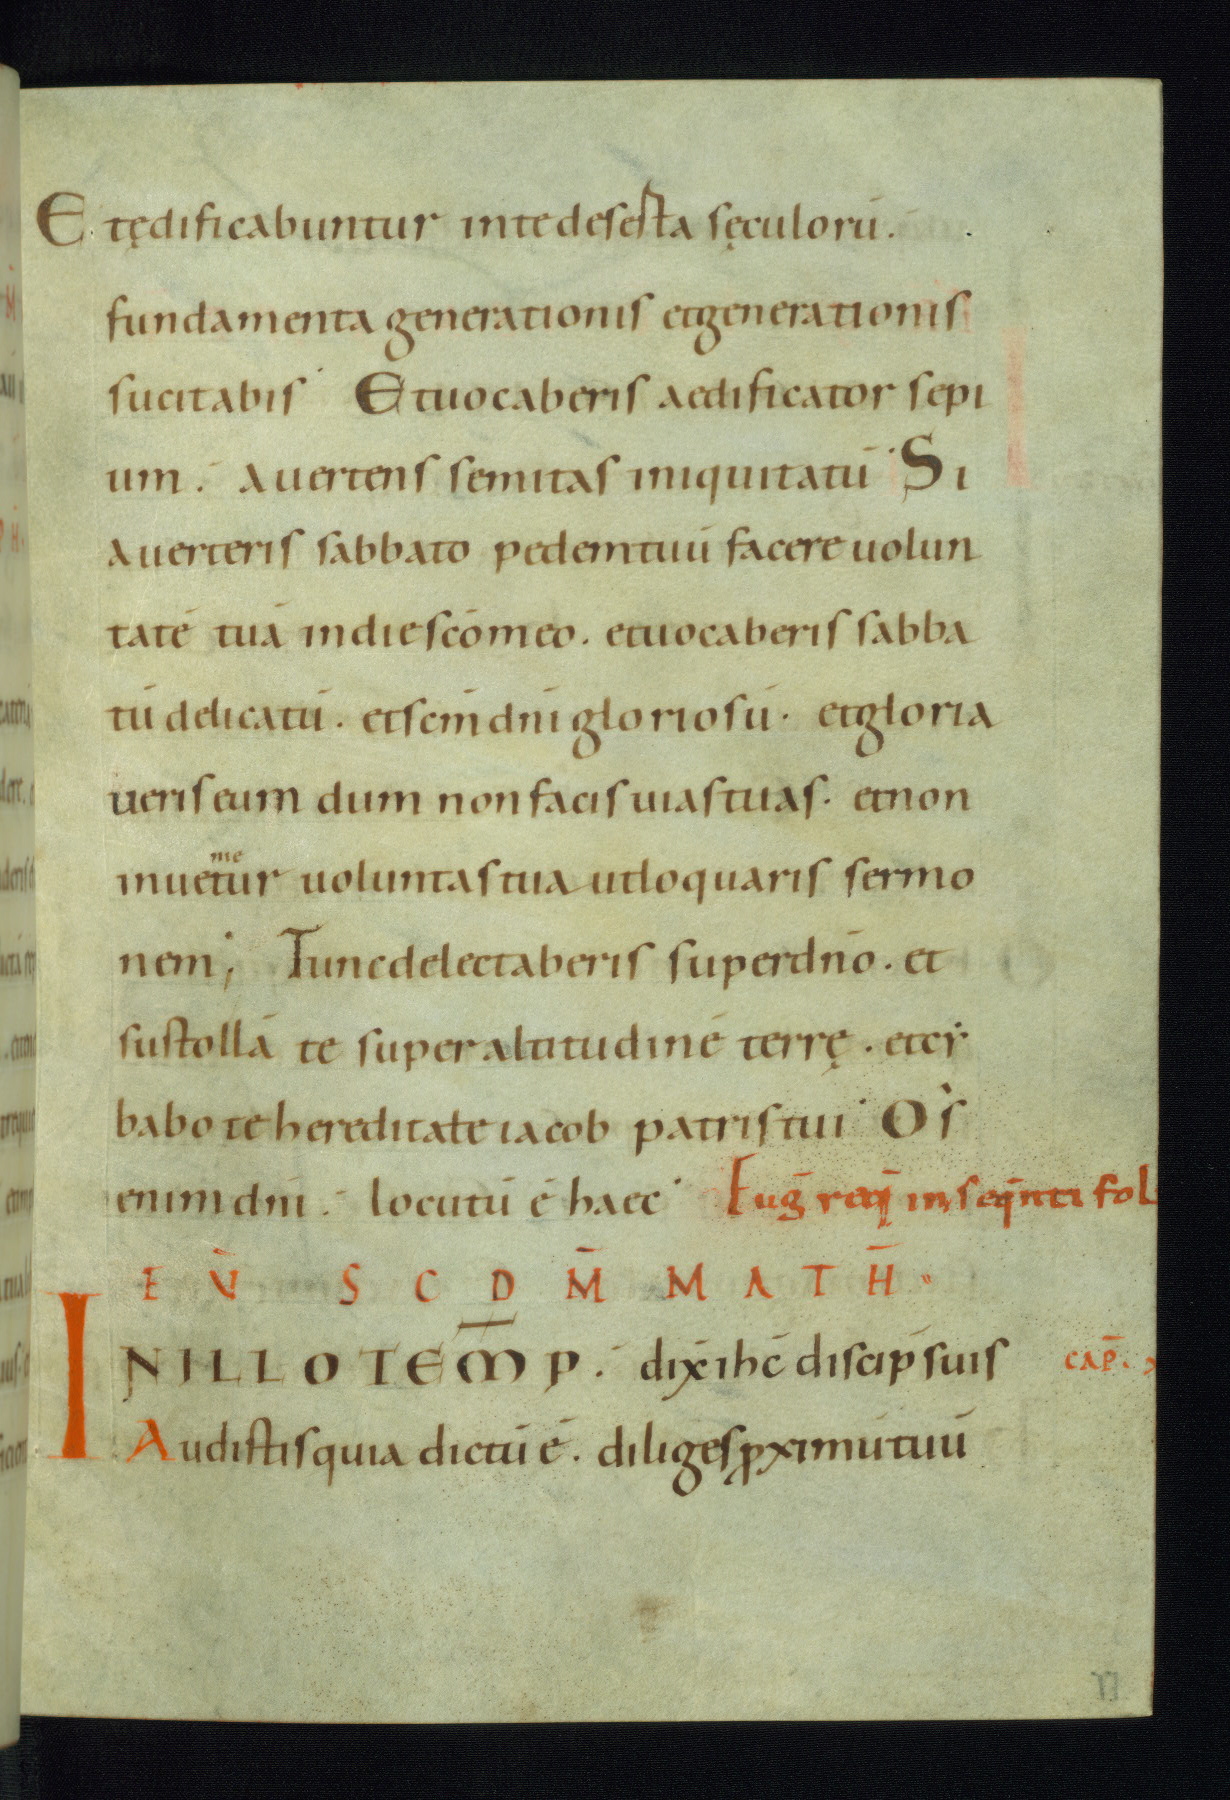 Et ędificabuntur in te deserta sęculorū.
fundamenta generationis et generationis
sucitabis Et uocaberis aedificator sepi
um. auertens semitas iniquitatū Si
auerteris sabbato pedem tuū facere uolun
tatē tuā in die scō meo. et uocaberis sabba
tū delicatū. et scm̄ dnī gloriosū. et gloria
ueris eum dum non facis uias tuas. et non
inuetur uoluntas tua ut loquaris sermo
me
nem; Tunc delectaberis super dnō. et
sustollā te super altitudinē terrę. et cy
babo te hereditate iacob patris tui Os
enim dnī. locutū ē haec Eug req̄ in seq̄nti fol
EV̄ SCDM̄ MATH̄.
IN ILLO TEMP̄. dix̄ ihc̄ discip̄ suis cap̄.
Audistis quia dictū ē. diliges ꝓximū tuū